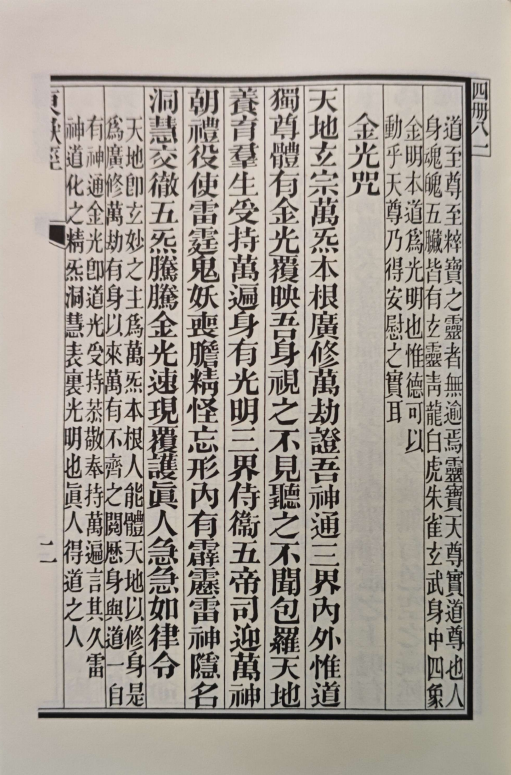 四册八一
道至尊至粹寶之靈者無逾焉靈寶天尊實道尊也人
身魂魄五臟皆有玄靈青龍白虎朱雀玄武身中四象
金明本道為光明也惟德可以
動乎天尊乃得安慰之實耳
金光咒
天地玄宗萬炁本根廣修萬劫證吾神通三界內外惟道
獨尊體有金光覆映吾身視之不見聽之不聞包羅天地
養育羣生受持萬遍身有光明三界侍衞五帝司迎萬神
朝禮役使雷霆鬼妖喪膽精怪忘形內有霹靂雷神隱名
洞慧交徹五炁騰騰金光速現覆護眞人急急如律令
天地卽玄妙之主為萬炁本根人能體天地以修身是
為廣修萬劫有身以來萬有不齊之閱歷身與道一自
有神通金光卽道光受持恭敬奉持萬遍言其久雷
神道化之精炁洞慧表裏光明也眞人得道之人
東嶽經
十一